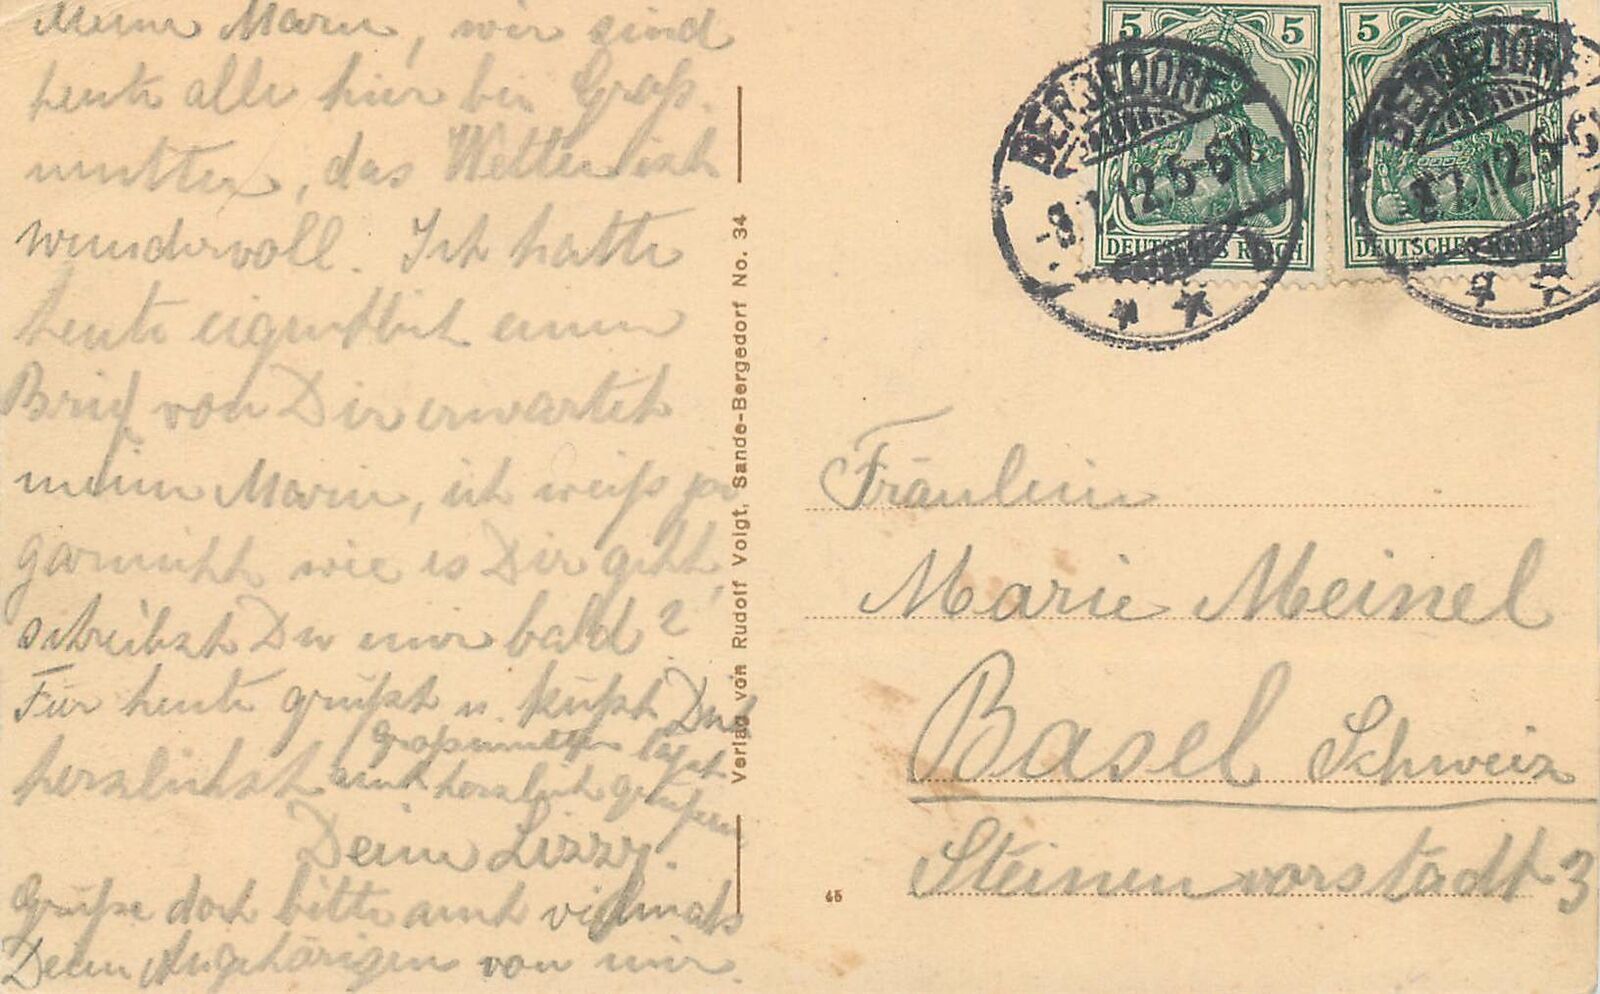 Meine Marie, wir sind
heute alle hier bei Groß-
mutter, das Wetter ist
wundervoll. Ich hatte
heute eigentlich einen
Brief von Dir erwartet
meine Marie, ich weiß ja
garnicht wie es Dir geht,
schreibst Du mir bald?
Für heute grüßt u. küßt Dich
herzlichst
Großmutter läßt
auch herzlich grüßen
Deine Lizzy.
Grüße doch bitte auch vielmals
Deine Angehörigen von mir.
Verlag von Rudolf Voigt, Sande-Bergedorf No. 34
5 5
DEUTSCHES REICH
5 5
DEUTSCHES REICH
BERGEDORF
12.5-6V
* *
BERGEDORF
-8.7.12.5-6V
* *
Fräulein
Marie Meinel
Basel Schweiz
Steinenvorstadt 3
45